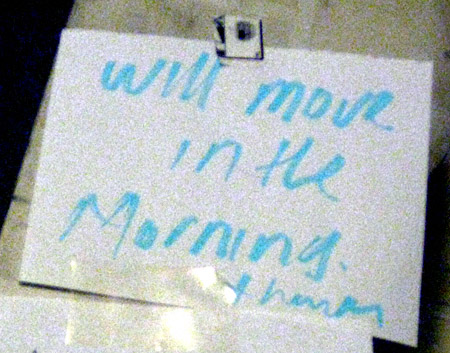 will move
in the
Morning.